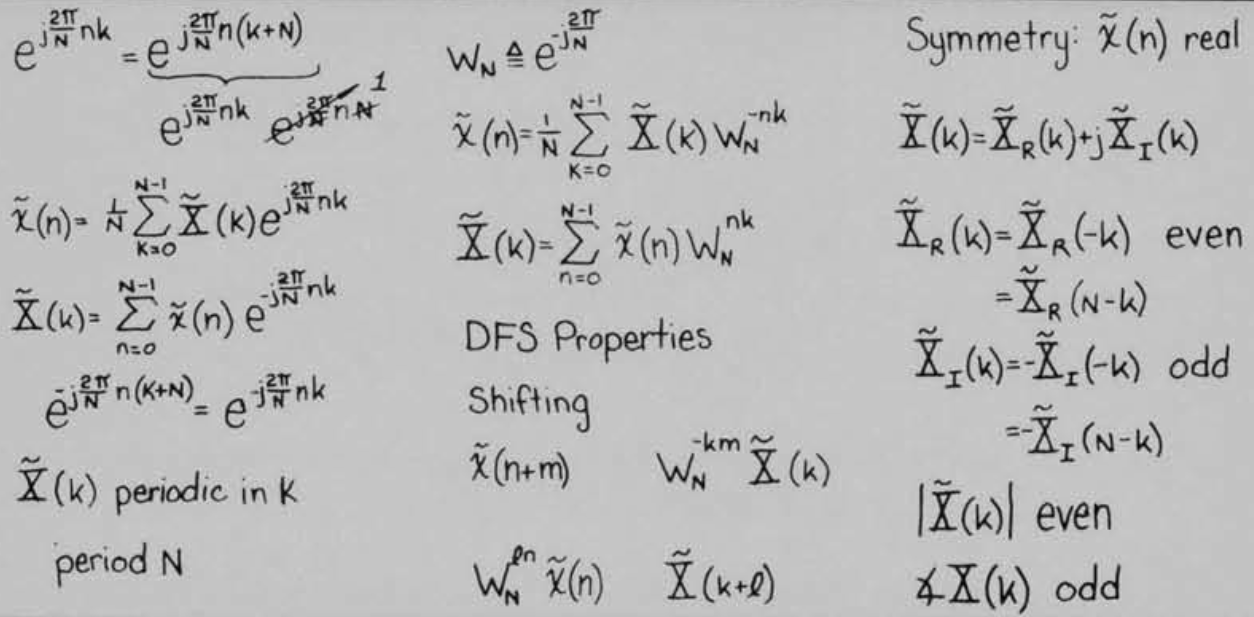 e^{j\frac{2π}{N}nk} = e^{j\frac{2π}{N}n(k+N)}
e^{j\frac{2π}{N}nk} e^{j\frac{2π}{N}nN} 1
x̃(n)= \frac{1}{N} \sum_{k=0}^{N-1} X̃(k) e^{j\frac{2π}{N}nk}
X̃(k)= \sum_{n=0}^{N-1} x̃(n) e^{-j\frac{2π}{N}nk}
e^{-j\frac{2π}{N}n(k+N)} = e^{-j\frac{2π}{N}nk}
X̃(k) periodic in k
period N
W_N ≜ e^{-j\frac{2π}{N}}
x̃(n)= \frac{1}{N} \sum_{k=0}^{N-1} X̃(k) W_N^{-nk}
X̃(k)= \sum_{n=0}^{N-1} x̃(n) W_N^{nk}
DFS Properties
Shifting
x̃(n+m) W_N^{-km} X̃(k)
W_N^{ℓn} x̃(n) X̃(k+ℓ)
Symmetry: x̃(n) real
X̃(k)=X̃_R(k)+jX̃_I(k)
X̃_R(k)=X̃_R(-k) even
=X̃_R(N-k)
X̃_I(k)=-X̃_I(-k) odd
=-X̃_I(N-k)
|X̃(k)| even
∡X(k) odd